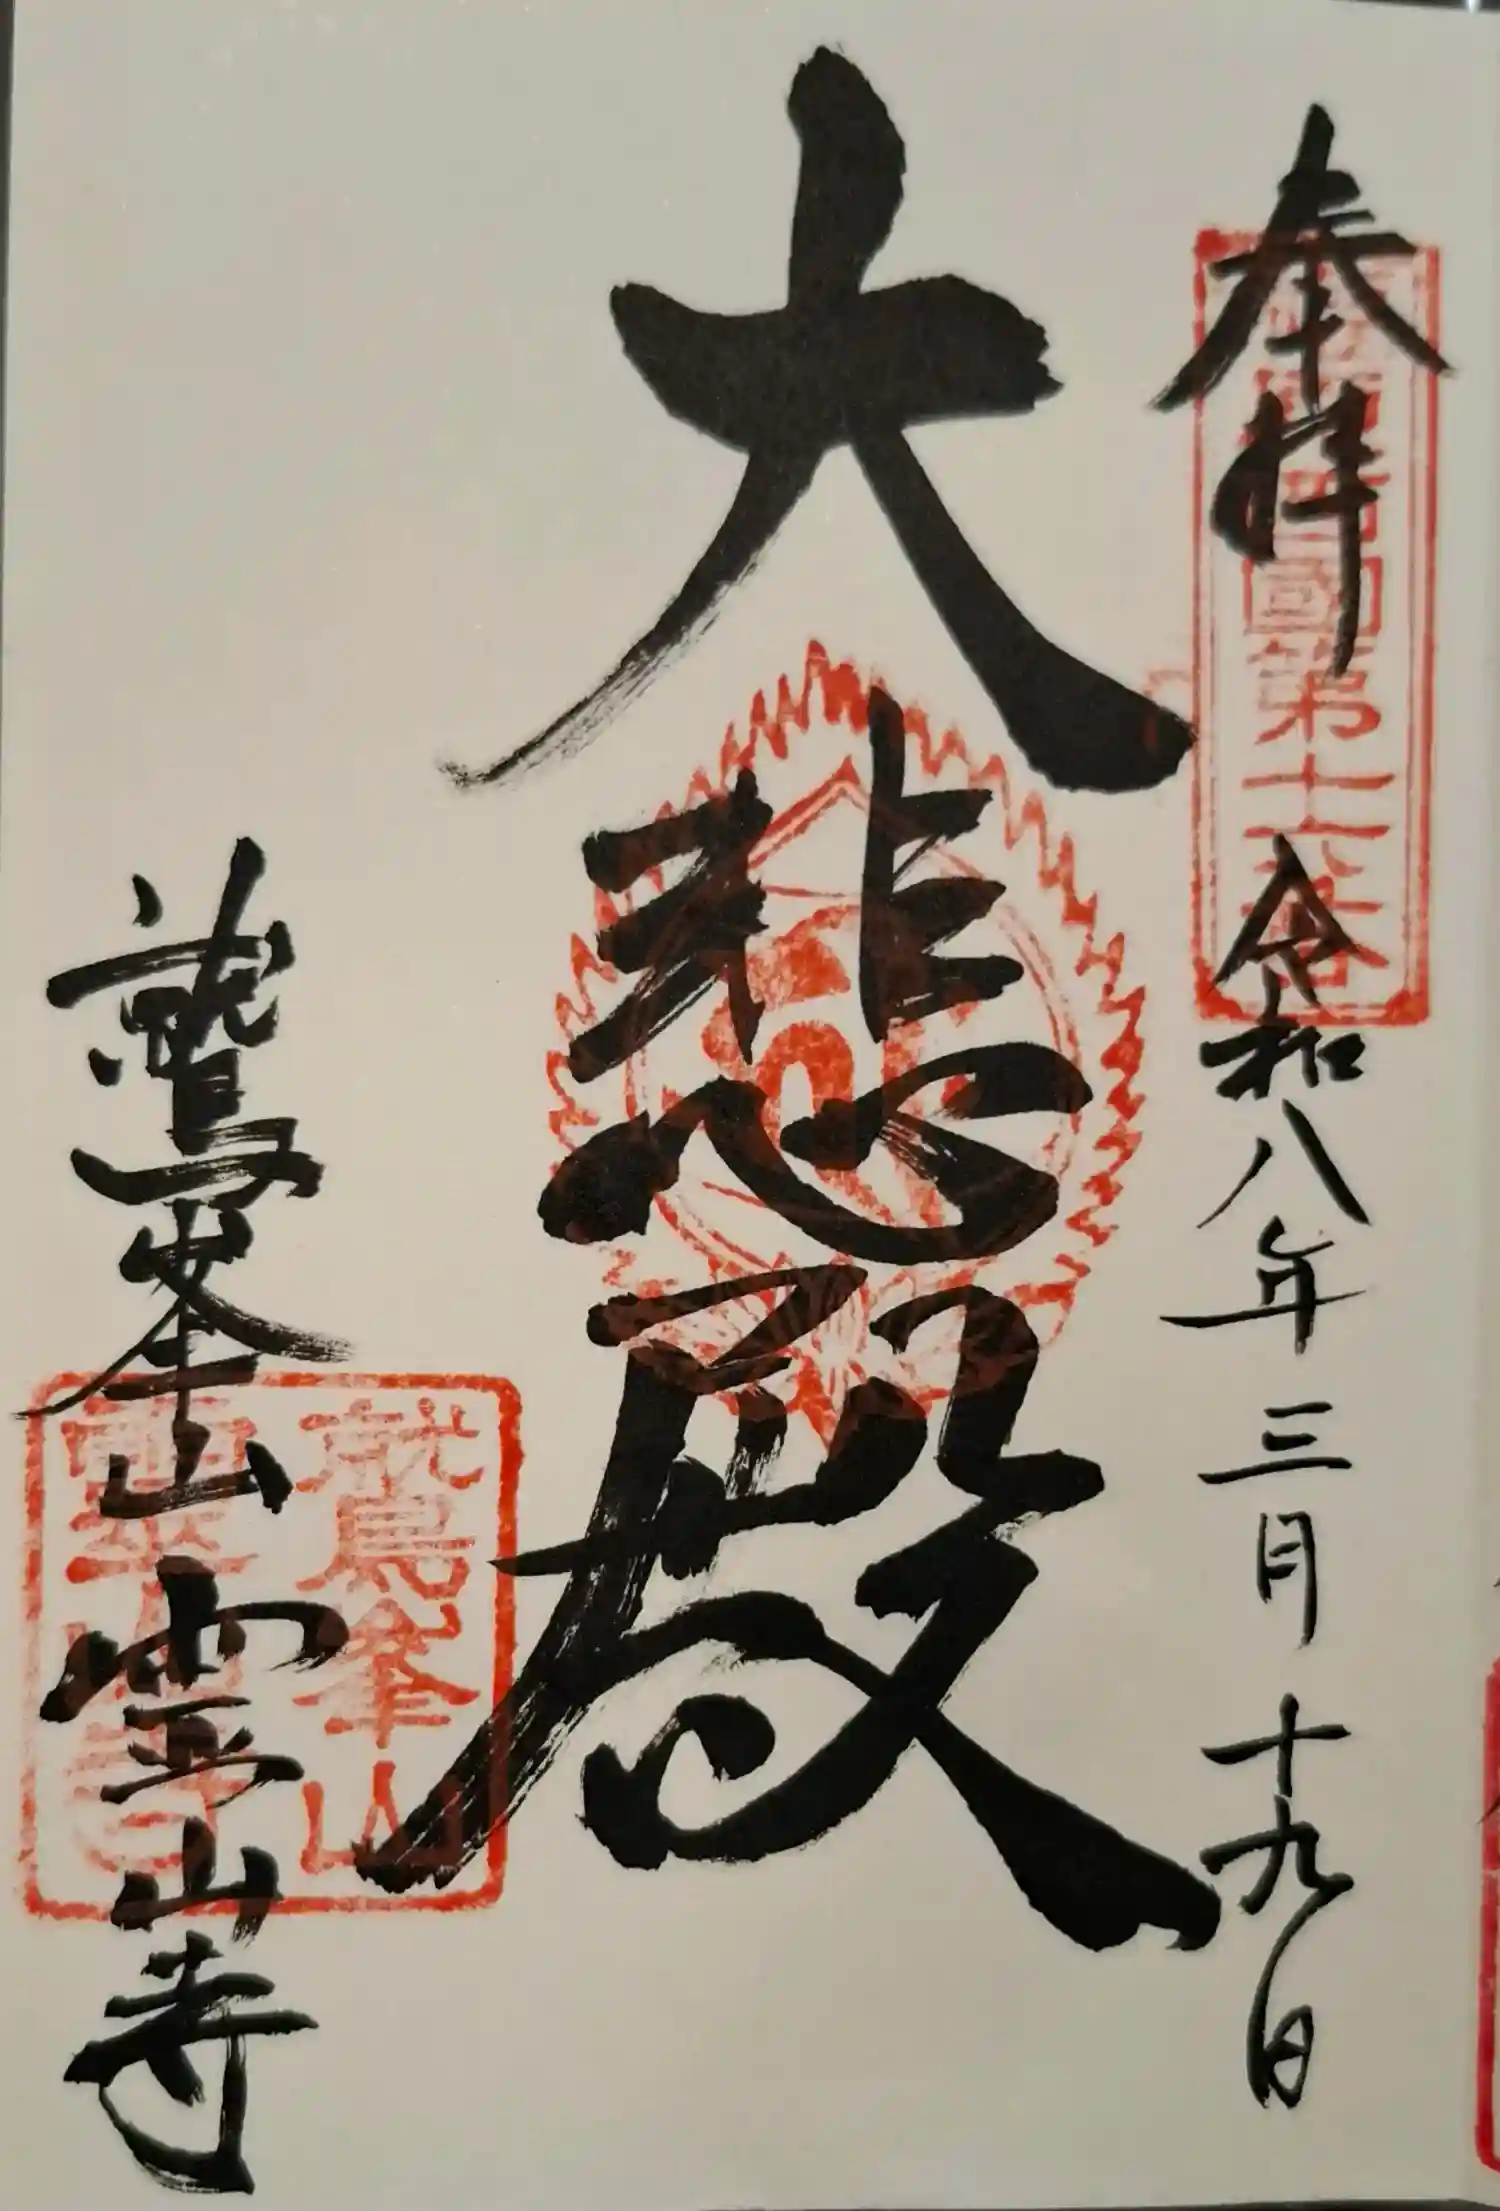 奉拝
令和八年三月十九日
國第十
大悲殿
鷲峯山 霊山寺
鷲峯山
靈山寺